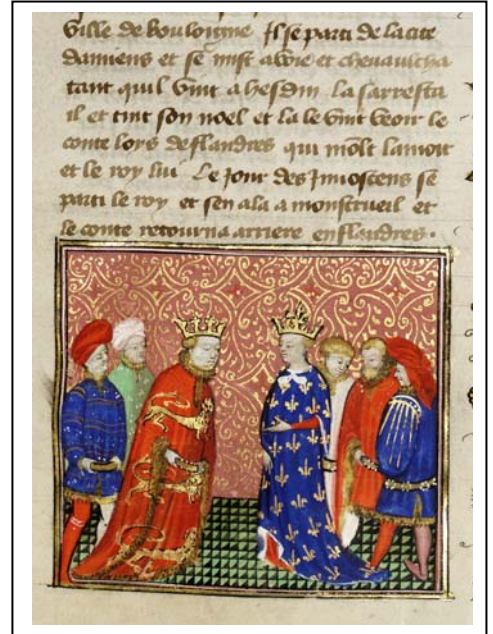 ville de bouloigne Il se parti de la cite
damiens et se mist a voie et chevaulcha
tant quil vint a hesdin la sarresta
il et tint son noel et la le vint veoir le
conte loys de flandres qui molt lamoit
et le roy lui Le jour des Innoscens se
parti le roy et sen ala a monstrueil et
le conte retourna arriere en flandres.